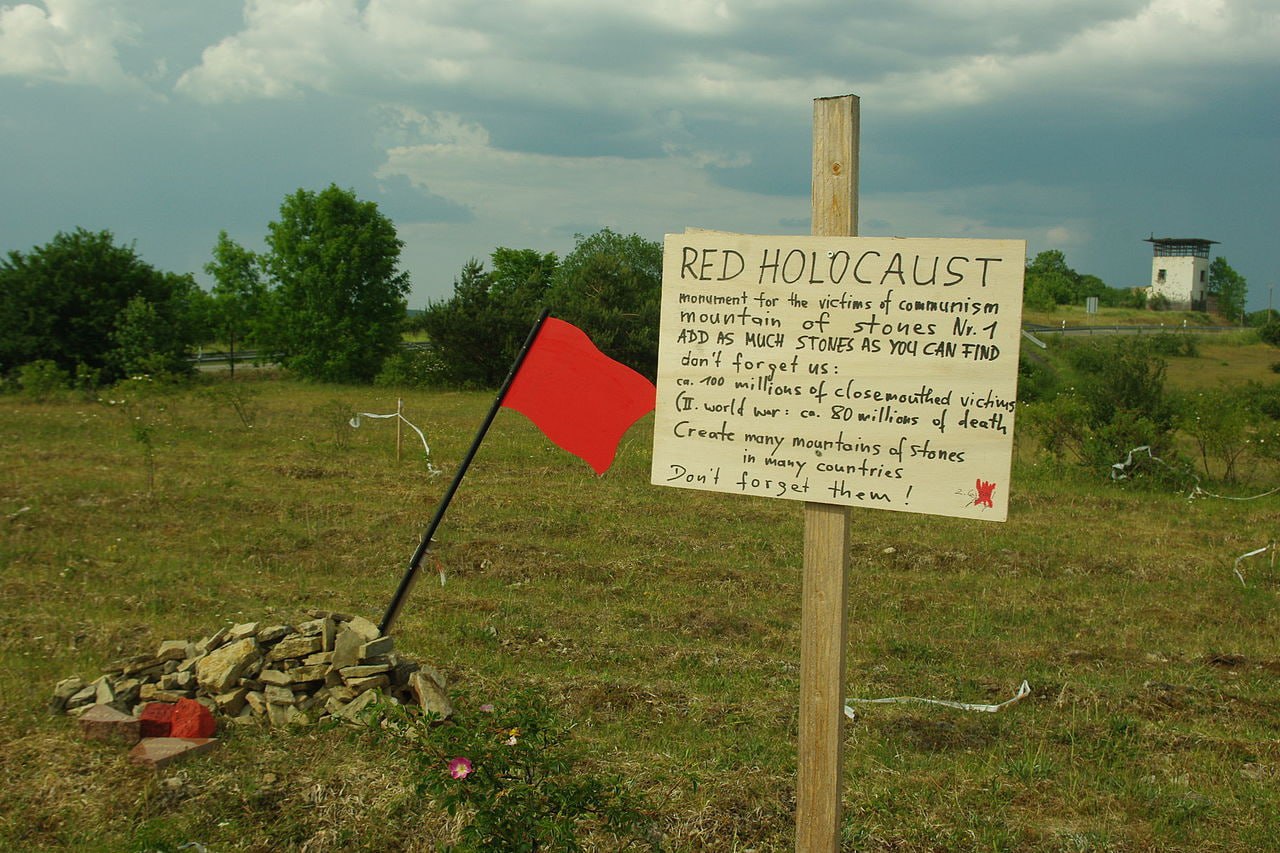 RED HOLOCAUST
monument for the victims of communism
mountain of stones Nr. 1
ADD AS MUCH STONES AS YOU CAN FIND
don't forget us:
ca. 100 millions of closemouthed victims
(II. world war: ca. 80 millions of death
Create many mountains of stones
in many countries
Don't forget them!